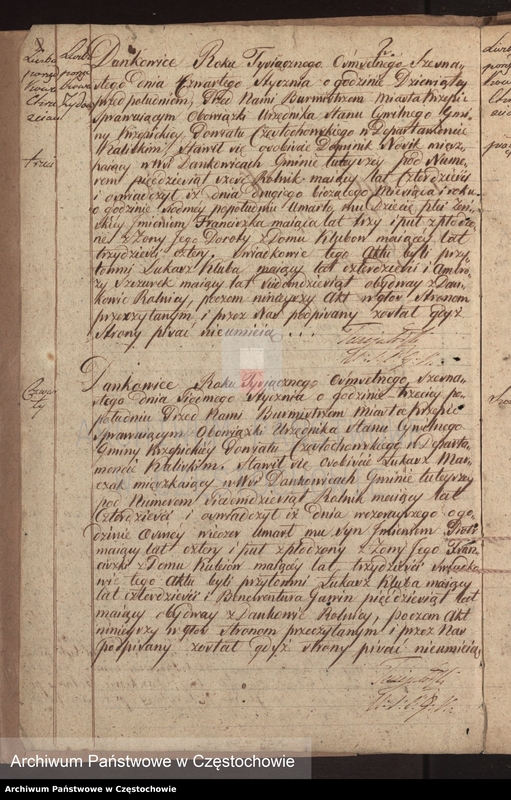 Dankowice Roku Tysiącznego Osmsetnego Szesna-
stego dnia Czwartego Stycznia o godzinie Dziewiątey
przed południem, Przed Nami Burmistrzem Miasta Krzepic
Sprawuiącym Obowiązki Urzędnika Stanu Cywilnego Gmi-
ny Krzepickiey Powiatu Częstochowskiego w Departamencie
Kaliskim Stawił się osobiście Dominik Nowik miesz-
kaiący w Wsi Dankowicach Gminie tuteyszey pod Nume-
rem pięcdziesiąt sześć Rolnik maiący lat Czterdzieści
i oswiadczył iż dnia drugiego bieżącego Miesiąca i roku
o godzinie siódmey popołudniu Umarło mu Dziecie płci Żeń-
skiey Jmieniem Franciszka maiąca lat trzy i puł zpłodzo-
ne z Żony Jego Doroty z Domu Klubow maiącey lat
trzydzieści cztery, Swiadkowie tego Aktu byli przy-
tomni Łukasz Kluba maiący lat czterdzieści i Ambro-
ży Szczurek maiący lat siedmdziesiąt obydway z Dan-
kowic Rolnicy, poczem ninieyszy Akt w głos Stronom
przeczytanym i przez Nas podpisany został gdyż
Strony pisać nieumieią . . .
trzeci
Dankowice Roku Tysiącznego Osmsetnego Szesna-
stego dnia Siodmego Stycznia o godzinie trzeciey po-
południu Przed Nami Burmistrzem Miasta Krzepic
Sprawuiącym Obowiązki Urzędnika Stanu Cywilnego
Gminy Krzepickiey Powiatu Częstochowskiego w Departa-
mencie Kaliskim. Stawił się osobiście Łukasz Mar-
czak mieszkaiący w Wsi Dankowicach Gminie tuteyszey
pod Numerem siedmdziesiąt Rolnik maiący lat
Czterdzieści i oswiadczył iż dnia wczorayszego o go-
dzinie Osmey wieczor Umarł mu Syn Jmieniem Piotr
maiący lat cztery i puł zpłodzony z Żony Jego Fran-
ciszki z Domu Kulsiow maiącey lat trzydzieści Swiadko-
wie tego Aktu byli przytomni Łukasz Kluba maiący
lat czterdzieści i Benewentura Gawin pięcdziesiąt lat
maiący obydway z Dankowic Rolnicy, poczem Akt
ninieyszy w głos Stronom przeczytanym i przez Nas
podpisany został gdyż strony pisać nieumieią
Czwar-
ty
Archiwum Państwowe w Częstochowie
Archiwum Państwowe w Częstochowie